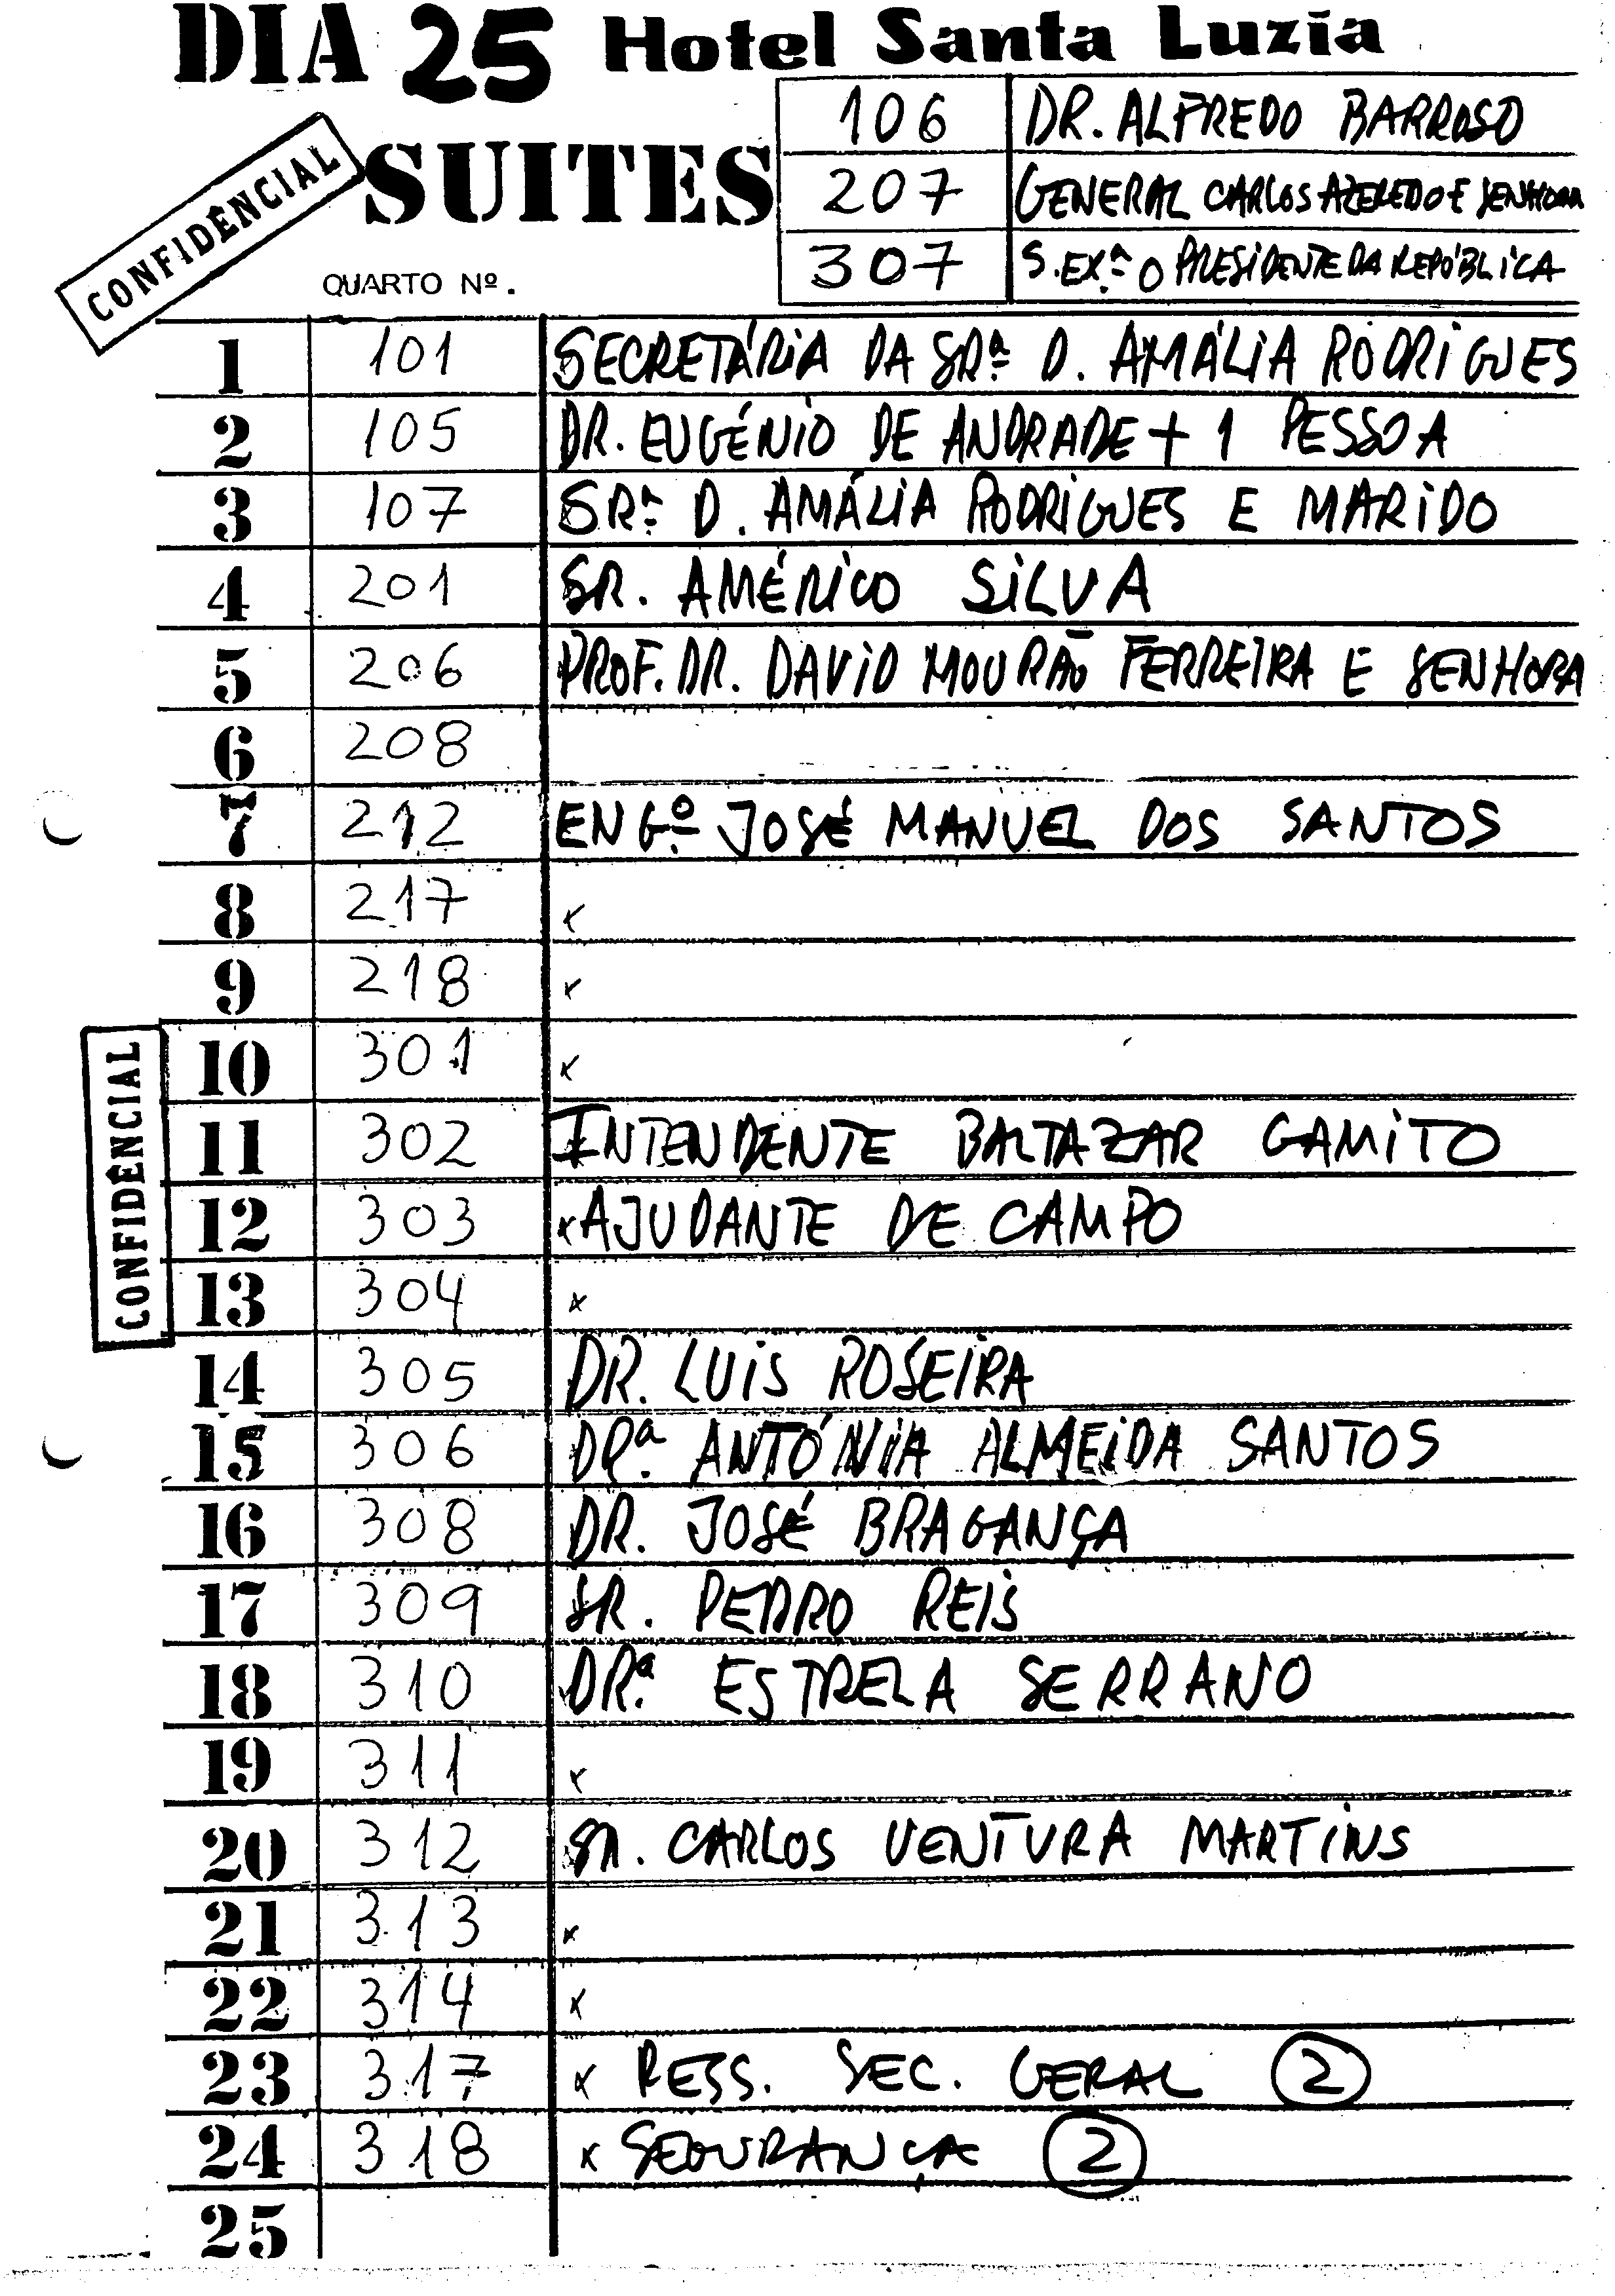 DIA 25 Hotel Santa Luzia
CONFIDÊNCIAL
SUITES
106 DR. ALFREDO BARROSO
207 GENERAL CARLOS AZEREDO E SENHORA
307 S. EXª O PRESIDENTE DA REPÚBLICA
QUARTO Nº.
1 101 SECRETÁRIA DA SRª D. AMÁLIA RODRIGUES
2 105 DR. EUGÉNIO DE ANDRADE + 1 PESSOA
3 107 SRª D. AMÁLIA RODRIGUES E MARIDO
4 201 SR. AMÉRICO SILVA
5 206 PROF. DR. DAVID MOURÃO FERREIRA E SENHORA
6 208
7 212 ENGº JOSÉ MANUEL DOS SANTOS
8 217 x
9 218 x
10 301 x
CONFIDÊNCIAL
11 302 INTENDENTE BALTAZAR GAMITO
12 303 x AJUDANTE DE CAMPO
13 304 x
14 305 DR. LUIS ROSEIRA
15 306 DRª. ANTÓNIA ALMEIDA SANTOS
16 308 DR. JOSÉ BRAGANÇA
17 309 SR. PEDRO REIS
18 310 DRª. ESTRELA SERRANO
19 311 x
20 312 SR. CARLOS VENTURA MARTINS
21 313 x
22 314 x
23 317 x PESS. SEC. GERAL 2
24 318 x SEGURANÇA 2
25